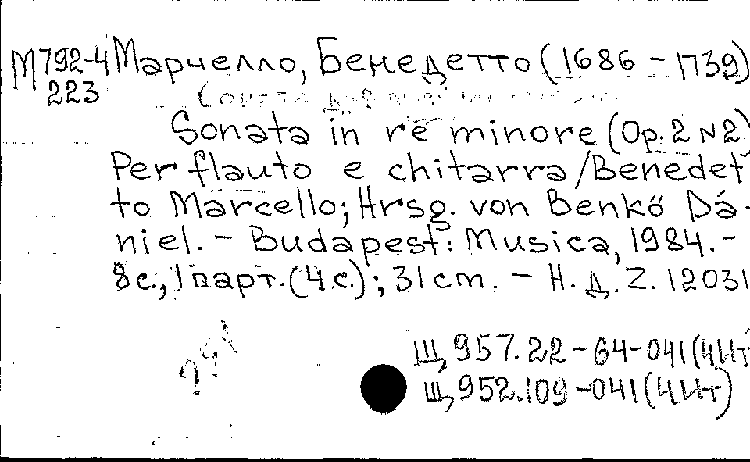 М 792-4 Марчелло, Бенедетто (1686 - 1739)
223
Sonata in re minore (Op. 2 N2)
Per flauto e chitarra / Benedet
to Marcello; Hrsg. von Benkó Dá-
niel. - Budapest: Musica, 1984. -
8 с., 1 парт. (4 с.); 31 cm. - Н. д. Z. 12031
Щ 957.22-64-041(4Ит
Щ 952.109-041(4Ит)